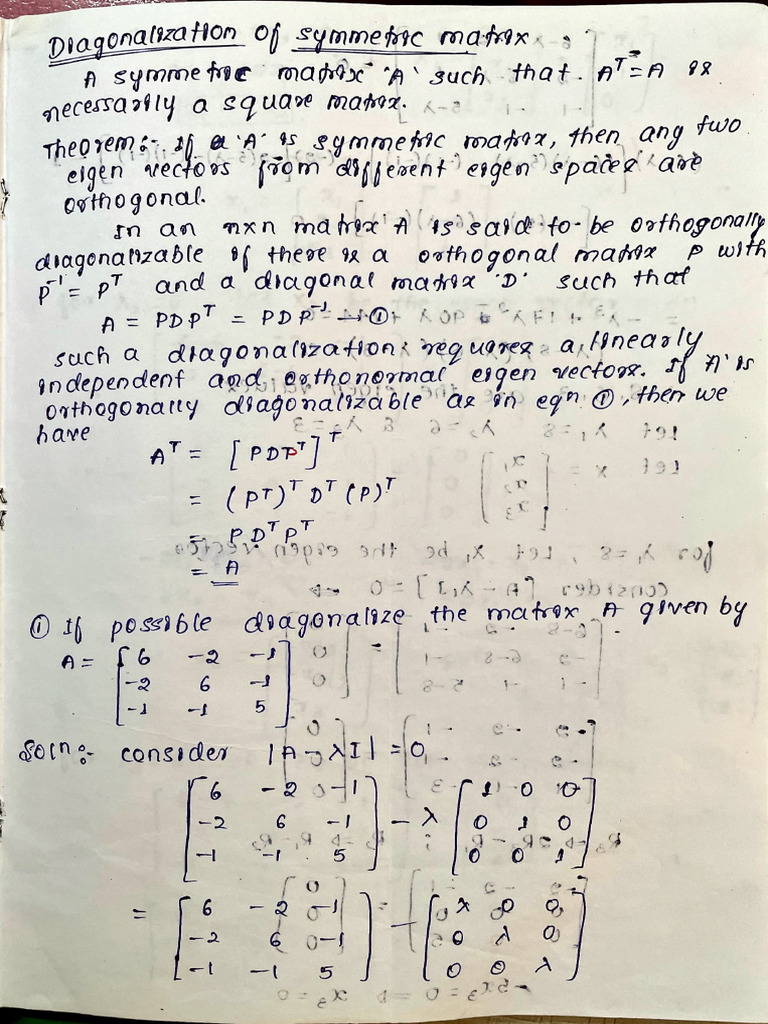 Diagonalization of symmetric matrix :
A symmetric matrix 'A' such that Aᵀ = A is
necessarily a square matrix.
Theorem:- If a 'A' is symmetric matrix, then any two
eigen vectors from different eigen spaces are
orthogonal.
In an nxn matrix A is said to be orthogonally
diagonalizable if there is a orthogonal matrix P with
P⁻¹ = Pᵀ and a diagonal matrix 'D' such that
A = PDPᵀ = PDP⁻¹ → ①
such a diagonalization requires a linearly
independent and orthonormal eigen vectors. If 'A' is
orthogonally diagonalizable as in eqn ①, then we
have
Aᵀ = [PDPᵀ]ᵀ
= (Pᵀ)ᵀ Dᵀ (P)ᵀ
= P Dᵀ Pᵀ
= A
① If possible diagonalize the matrix A given by
A = [6 -2 -1
-2 6 -1
-1 -1 5]
Soln:- consider |A - λI| = 0
[6 -2 -1
-2 6 -1
-1 -1 5] - λ [1 0 0
0 1 0
0 0 1]
= [6 -2 -1
-2 6 -1
-1 -1 5] - [λ 0 0
0 λ 0
0 0 λ]